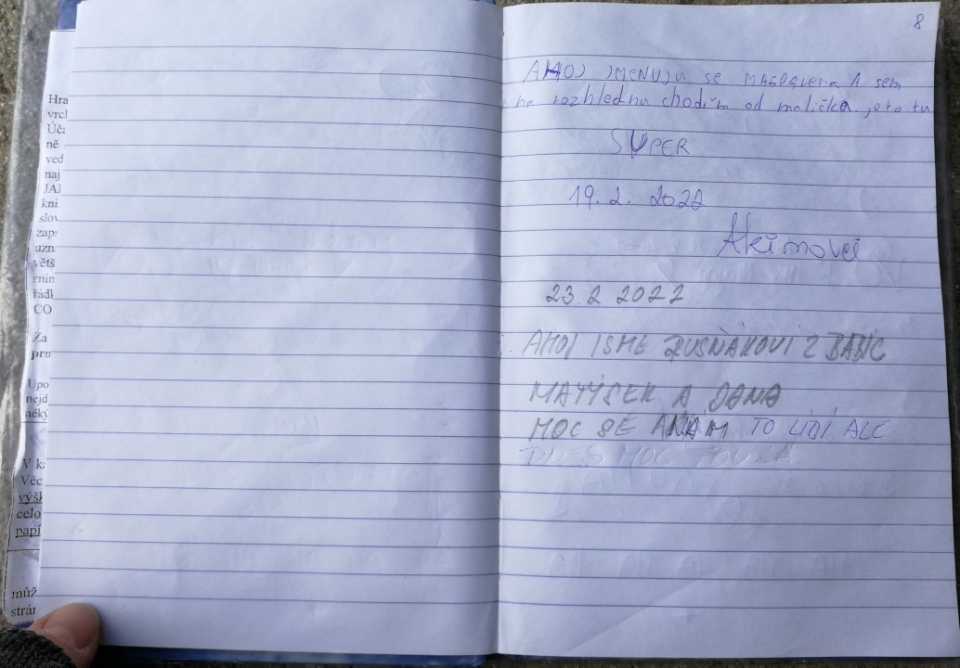 Hra
vrcl
Úča
ně
ved
naj
JAI
kni
slov
zap
uzn
větš
řádl
CO
Za
pro
Upo
nejd
něky
V k
Věc
výšk
celo
napí
můž
strán
8
AHOJ JMENUJU SE MAGDALENA A SEM
na rozhlednu chodím od malička. je to tu
SUPER
19. 2. 2022
23. 2 2022
AHOJ JSME Z BABIC
MATÝSEK A DANA
MOC SE NÁM TO LÍBÍ ALE
DNES MOC FOUKÁ